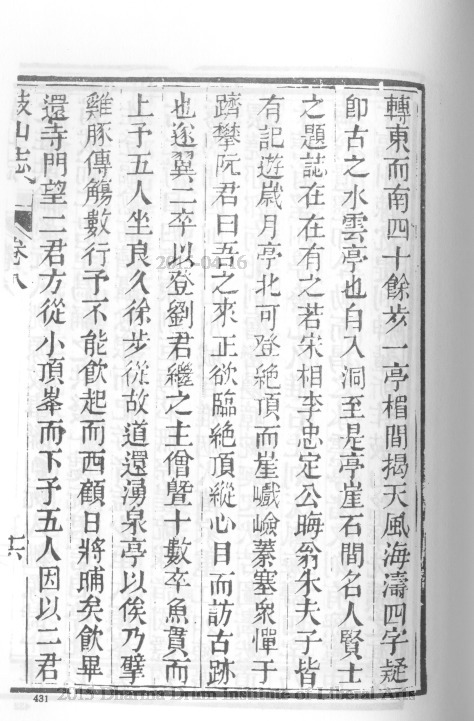 轉東而南四十餘步一亭楣間揭天風海濤四字疑
卽古之水雲亭也自入洞至是亭崖石間名人賢士
之題誌在在有之若宋相李忠定公晦翁朱夫子皆
有記遊歲月亭北可登絶頂而崖巇嶮蓁塞衆憚于
躋攀阮君曰吾之來正欲臨絶頂縱心目而訪古跡
也遂翼二卒以登劉君繼之主僧曁十數卒魚貫而
上予五人坐良久徐步從故道還湧泉亭以俟乃擘
雞豚傳觴數行予不能飲起而西顧日將晡矣飲畢
還寺門望二君方從小頂峯而下予五人因以二君
鼓山志 卷八
六
431
2015-04-16
2015 Dharma Drum Institute of Liberal Arts